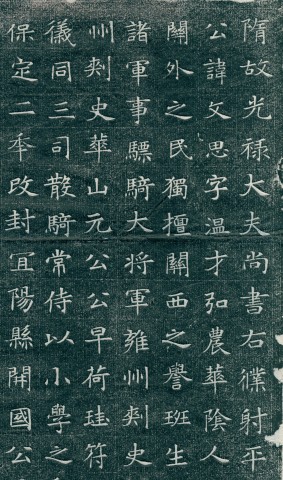 隋故光禄大夫尚書右僕射平
公諱文思字温才弘農華陰人
關外之民獨擅關西之譽班生
諸軍事驃騎大將軍雍州刾史
州刾史華山元公公早荷珪符
儀同三司散騎常侍以小學之
保定二年改封宜陽縣開國公